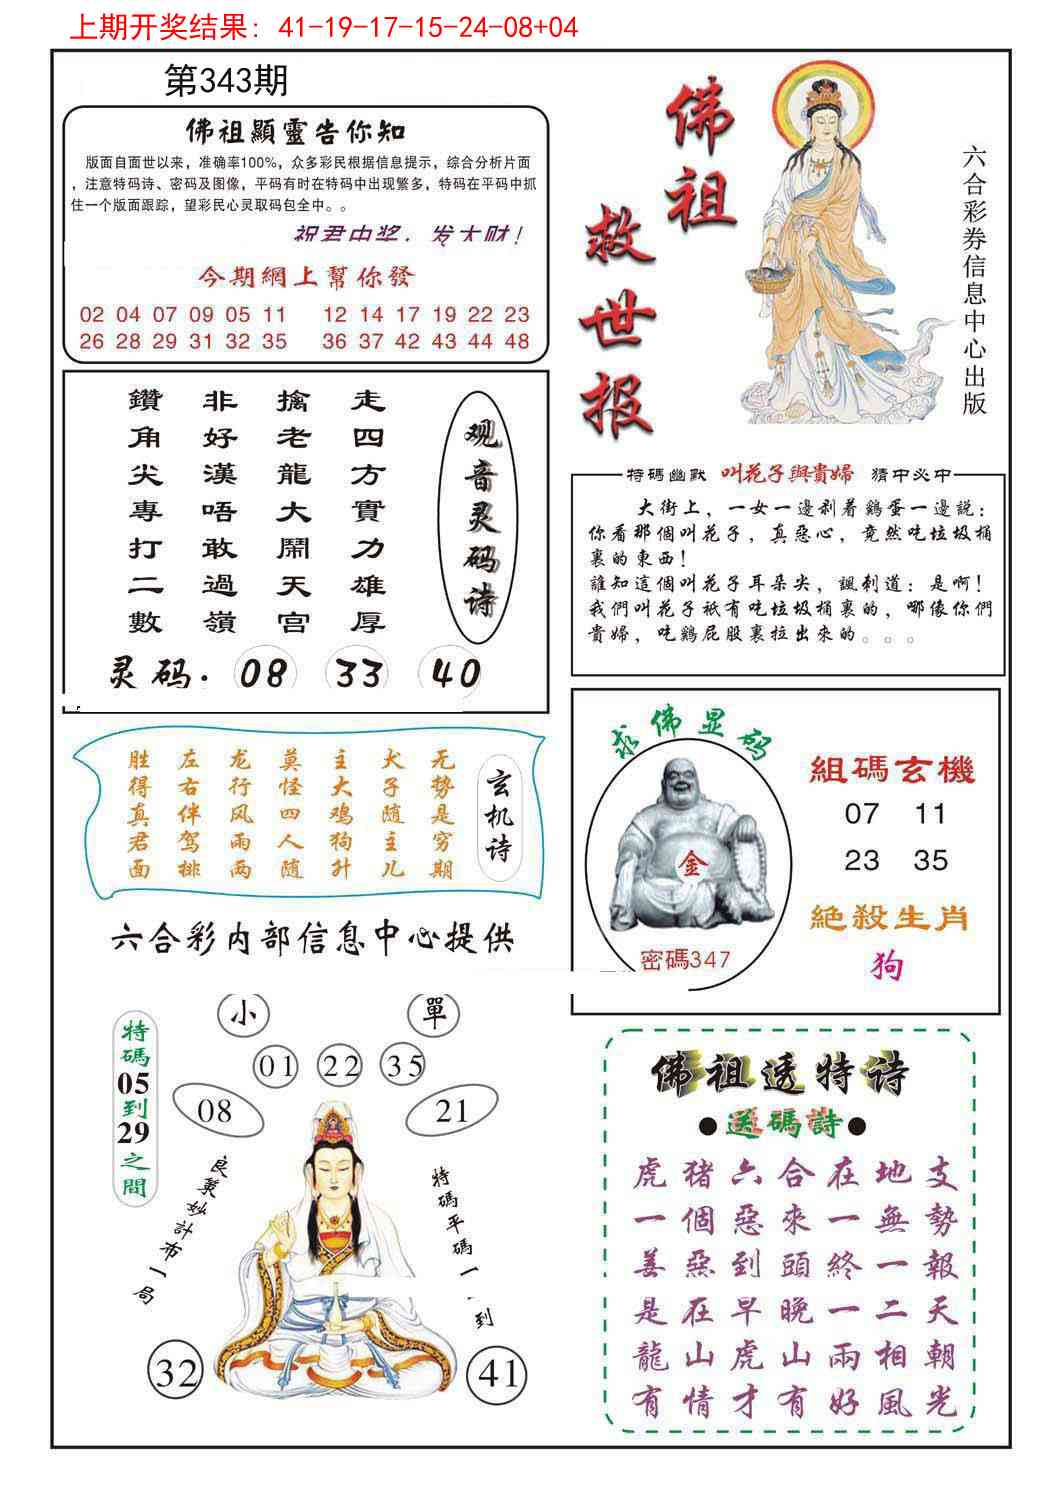 上期开奖结果: 41-19-17-15-24-08+04
第343期
佛祖顯靈告你知
版面自面世以来，准确率100%，众多彩民根据信息提示，综合分析片面
，注意特码诗、密码及图像，平码有时在特码中出现繁多，特码在平码中抓
住一个版面跟踪，望彩民心灵取码包全中。。
祝君中奖，发大财！
今期網上幫你發
02 04 07 09 05 11 12 14 17 19 22 23
26 28 29 31 32 35 36 37 42 43 44 48
佛祖
救世报
六合彩券信息中心出版
观音灵码诗
走四方實力雄厚
擒老龍大鬧天宫
非好漢唔敢過嶺
鑽角尖專打二數
灵码. 08 33 40
特碼幽默 叫花子與貴婦 猜中必中
大街上，一女一邊剥着鷄蛋一邊説：
你看那個叫花子，真惡心，竟然吃垃圾桶
裏的東西！
誰知這個叫花子耳朵尖，諷刺道：是啊！
我們叫花子祇有吃垃圾桶裏的，哪像你們
貴婦，吃鷄屁股裏拉出來的。。。
玄机诗
无势是穷期
犬子随主儿
主大鸡狗升
莫怪四人随
龙行风雨两
左右伴驾排
胜得真君面
六合彩内部信息中心提供
求佛显码
金
密碼347
組碼玄機
07 11
23 35
絶殺生肖
狗
小 單
01 22 35
08 21
特碼05到29之間
良策妙計布一局
特碼平碼一一到
32 41
佛祖透特诗
●送碼詩●
虎猪六合在地支
一個惡來一無勢
善惡到頭終一報
是在早晚一二天
龍山虎山兩相朝
有情才有好風光